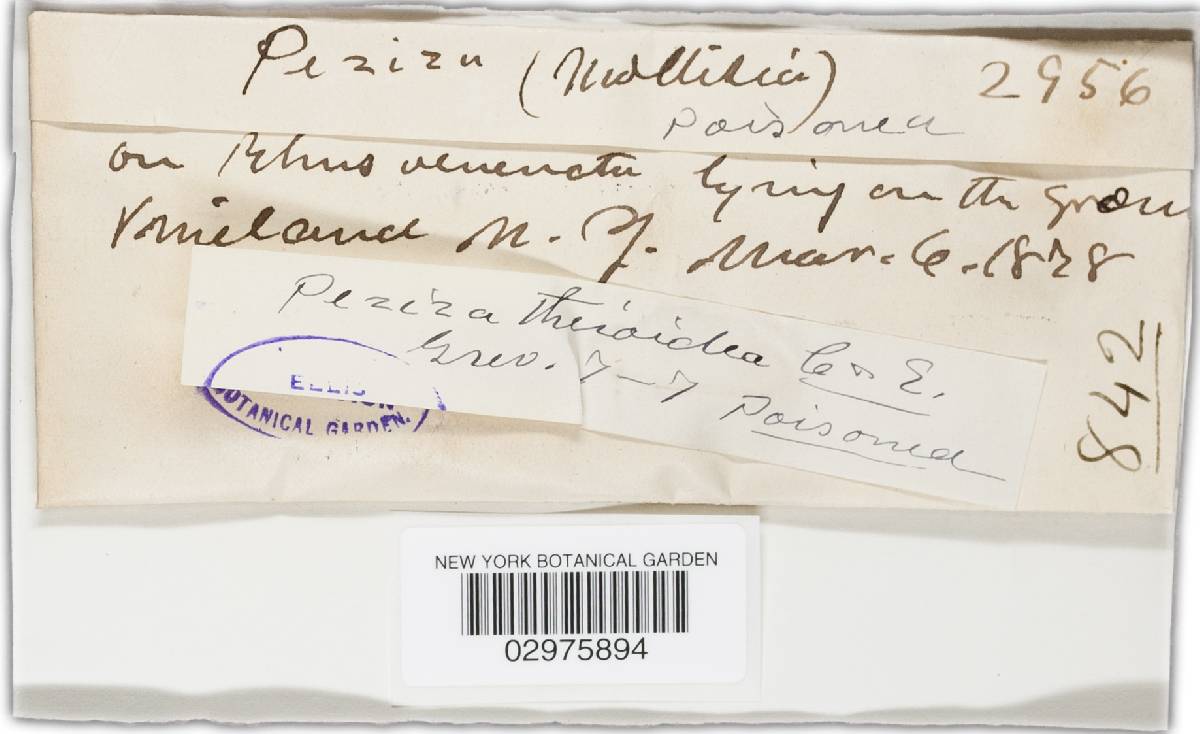 Peziza (Mollisia) 2956
Poisoned
on Rhus venenata lying on the groun
Vineland N. J. Mar. 6. 1878
Peziza therioidea C & E.
Grev. 7–7 Poisoned
842
ELLIS
BOTANICAL GARDEN.
NEW YORK BOTANICAL GARDEN
02975894